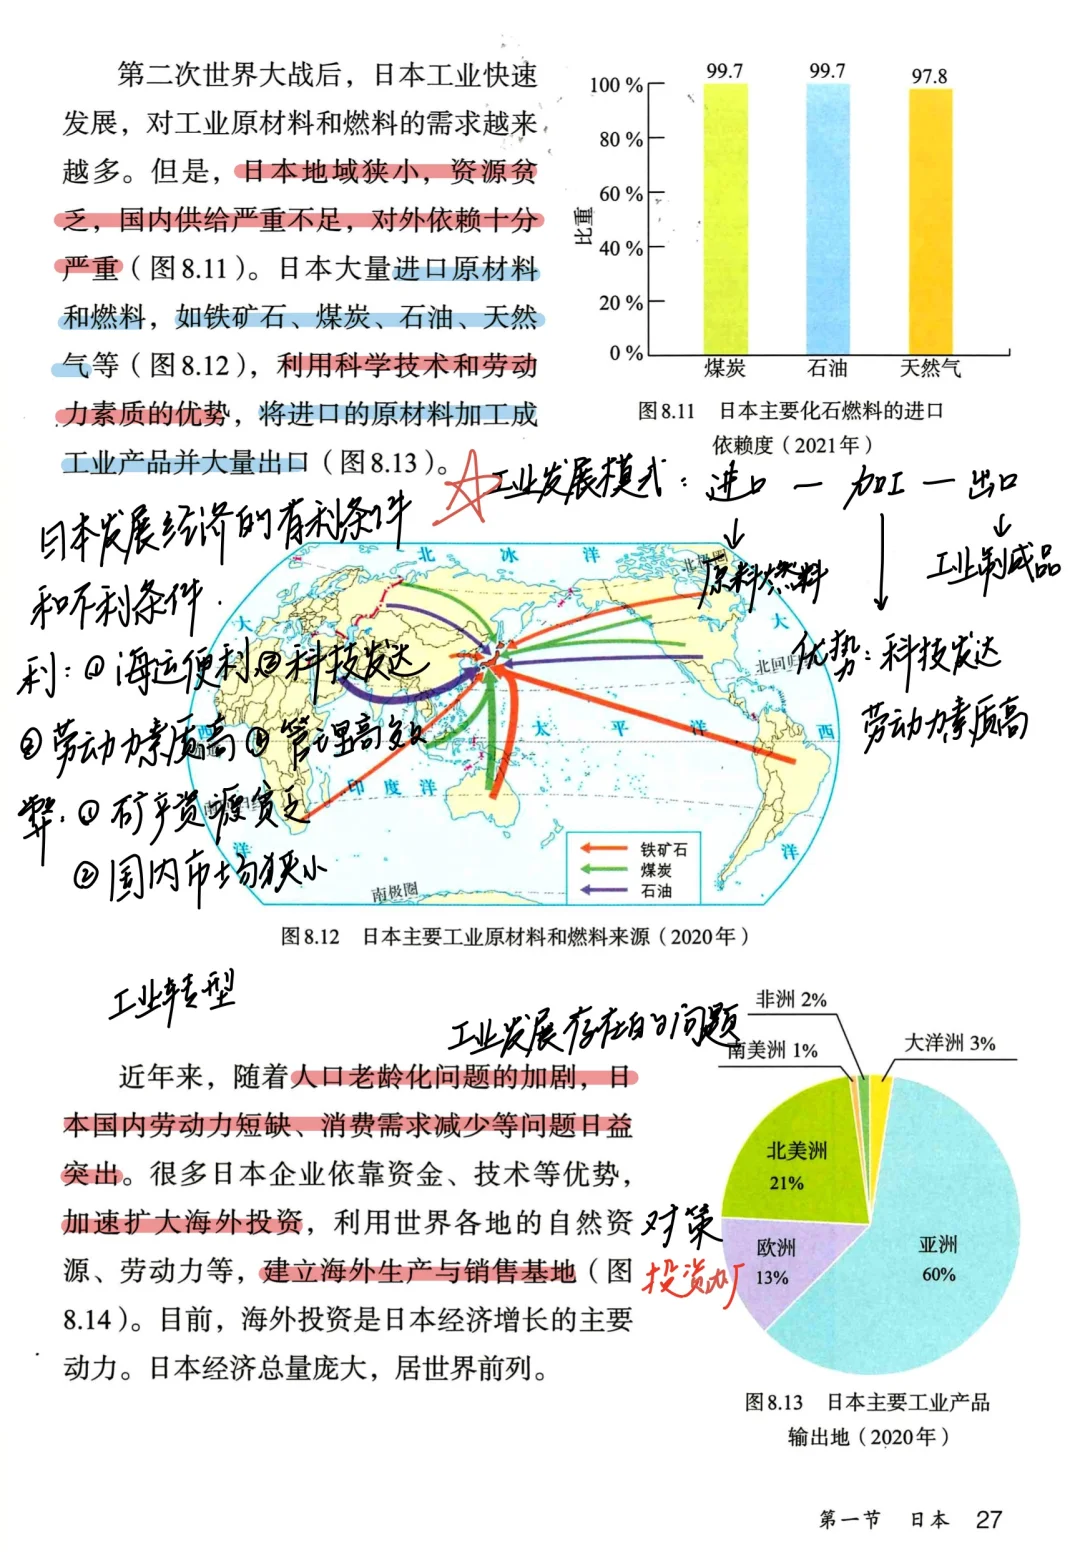 第二次世界大战后，日本工业快速
发展，对工业原材料和燃料的需求越来
越多。但是，日本地域狭小，资源贫
乏，国内供给严重不足，对外依赖十分
严重（图8.11）。日本大量进口原材料
和燃料，如铁矿石、煤炭、石油、天然
气等（图8.12），利用科学技术和劳动
力素质的优势，将进口的原材料加工成
工业产品并大量出口（图8.13）。
比重
100 %
80 %
60 %
40 %
20 %
0 %
99.7
99.7
97.8
煤炭
石油
天然气
图8.11 日本主要化石燃料的进口
依赖度（2021年）
工业发展模式：进口 — 加工 — 出口
原料燃料
工业制成品
优势：科技发达
劳动力素质高
日本发展经济的有利条件
和不利条件.
利：①海运便利③科技发达
②劳动力素质高④管理高效
弊：①矿产资源贫乏
②国内市场狭小
北 冰 洋
北极圈
大
西
洋
印 度 洋
太 平 洋
北回归线
大
西
洋
南极圈
铁矿石
煤炭
石油
图8.12 日本主要工业原材料和燃料来源（2020年）
工业转型
工业发展存在的问题
近年来，随着人口老龄化问题的加剧，日
本国内劳动力短缺、消费需求减少等问题日益
突出。很多日本企业依靠资金、技术等优势，
加速扩大海外投资，利用世界各地的自然资
源、劳动力等，建立海外生产与销售基地（图
8.14）。目前，海外投资是日本经济增长的主要
动力。日本经济总量庞大，居世界前列。
对策
投资办厂
非洲 2%
南美洲 1%
大洋洲 3%
北美洲
21%
欧洲
13%
亚洲
60%
图8.13 日本主要工业产品
输出地（2020年）
第一节 日本 27